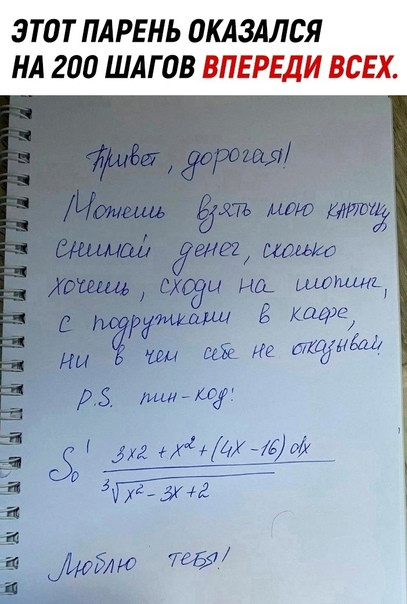 ЭТОТ ПАРЕНЬ ОКАЗАЛСЯ
НА 200 ШАГОВ ВПЕРЕДИ ВСЕХ.
Привет, дорогая!
Можешь взять мою карточку,
снимай денег, сколько
хочешь, сходи на шопинг,
с подружками в кафе,
ни в чем себе не отказывай.
P.S. пин-код:
S₀¹ 3x2 + x² + (4x - 16) dx
³√x² - 3x + 2
Люблю тебя!